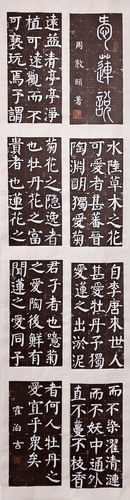 愛蓮說
周敦頤著
水陸草木之花
可愛者甚蕃晉
陶淵明獨愛菊
自李唐來世人
甚愛牡丹予獨
愛蓮之出淤泥
而不染濯清漣
而不妖中通外
直不蔓不枝香
遠益清亭亭淨
植可遠觀而不
可褻玩焉予謂
菊花之隱逸者
也牡丹花之富
貴者也蓮花之
君子者也噫菊
之愛陶後鮮有
聞蓮之愛同予
者何人牡丹之
愛宜乎衆矣